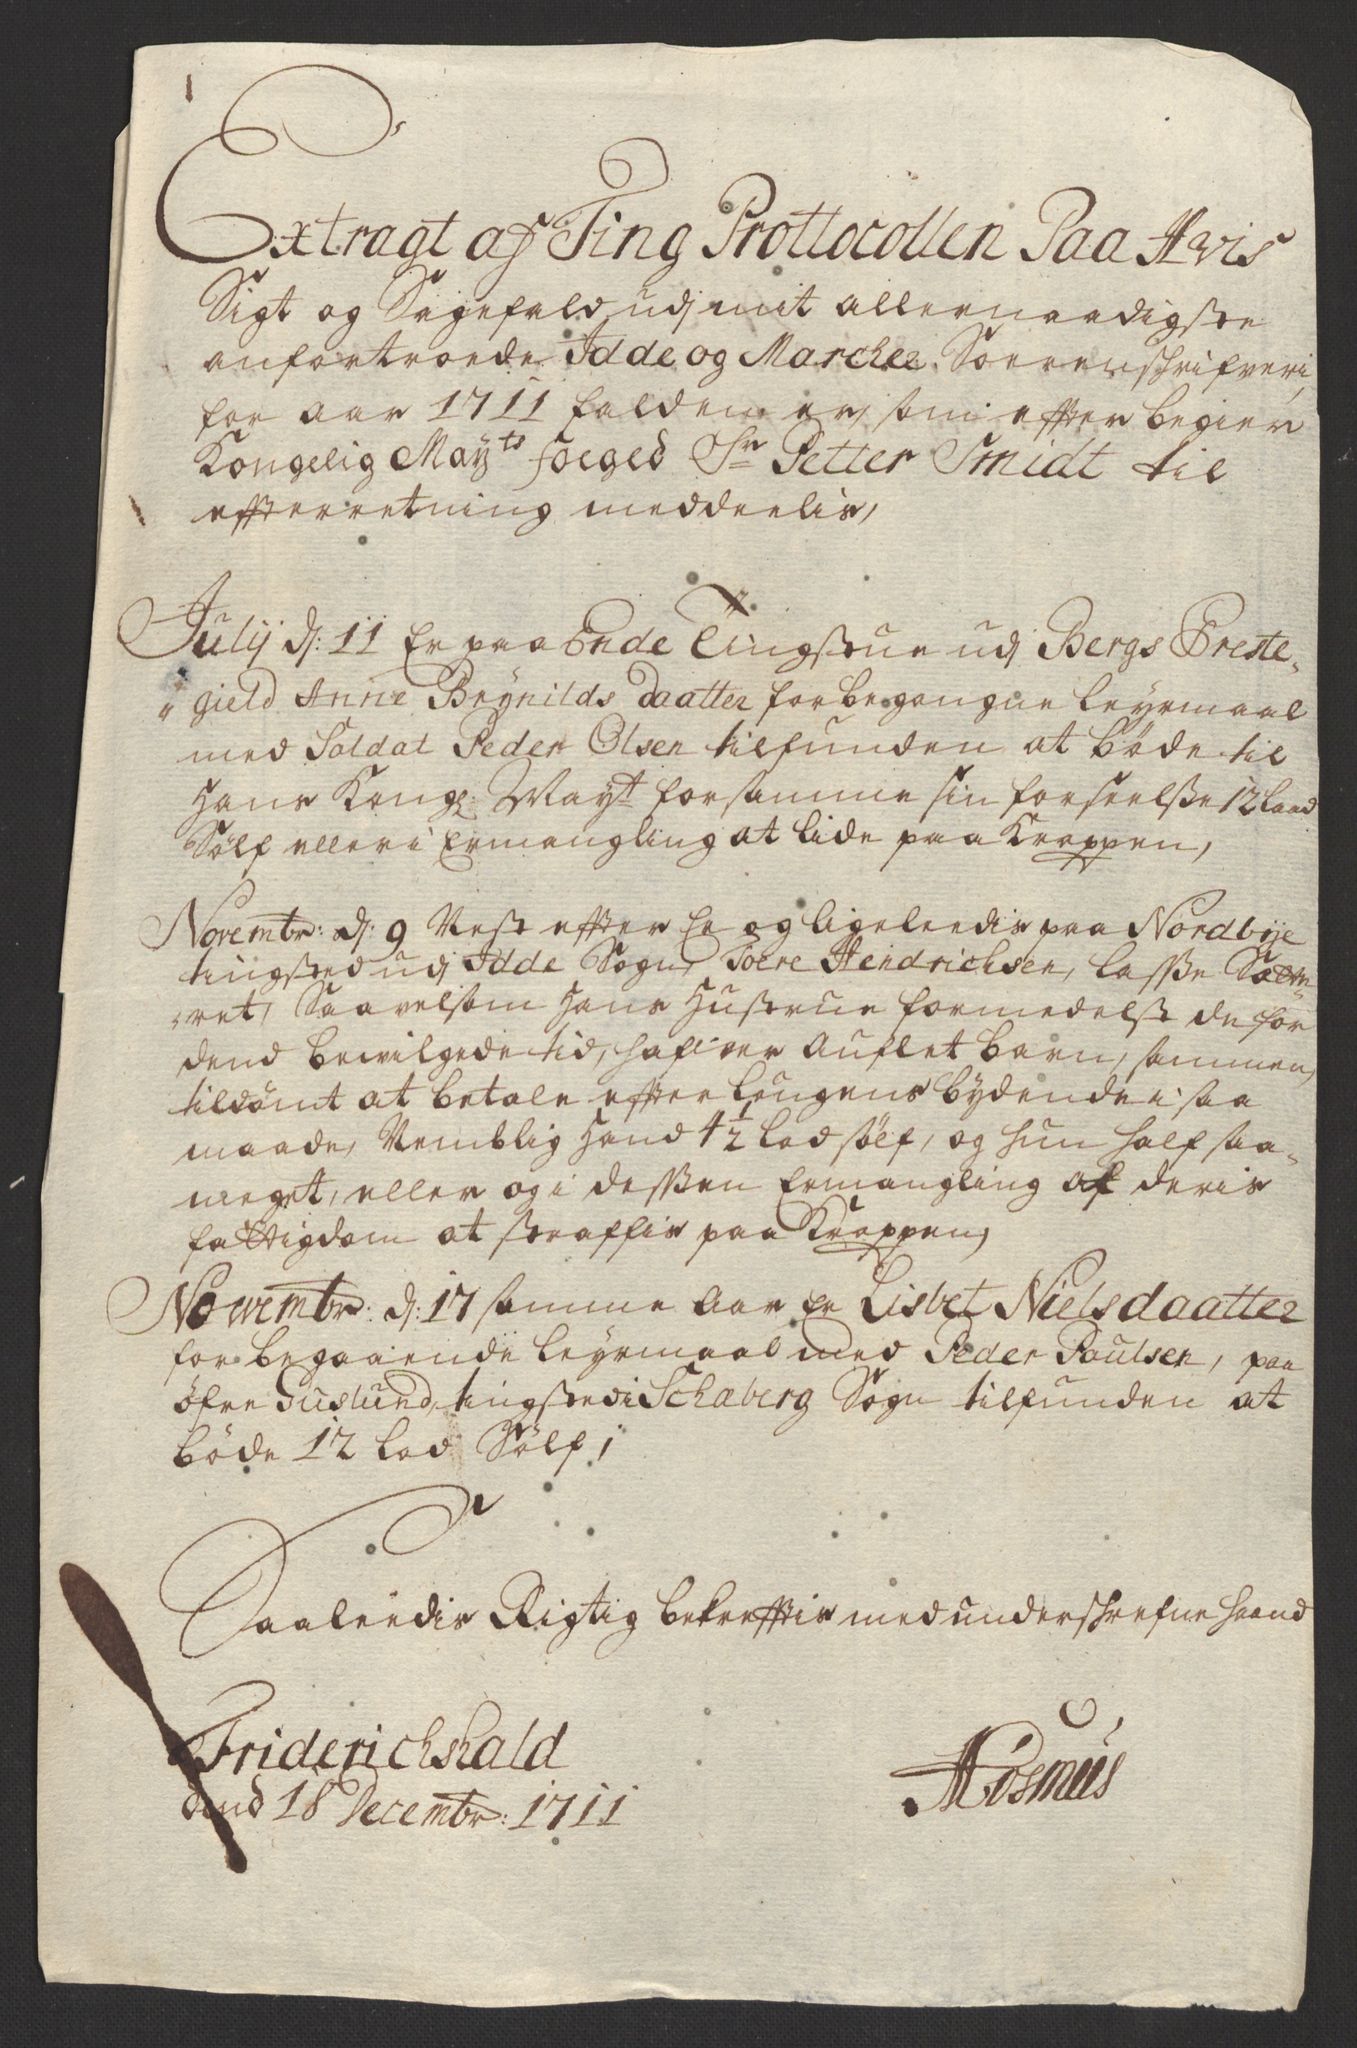 Extragt af Ting Prottocollen Paa Hvis
Sigt og Sagefald udj mit allernaadigste
anfortroede Idde og Marcher Sorrenschrifveri
for aar 1711 falden er, som effter begier
Kongelig Mayts foeged Sr Petter Smidt til
effterretning meddeelis,
Julij d: 11 Er paa Ende Tingstue udj Bergs Preste-
gield Anne Brÿnilds daatter for begangne leyermaal
med Soldat Peder Olsen tilfunden at bøde til
Hans Kongl Mayt for samme sin forseelsse 12 Laad
Sølf eller i Ermangling at lide paa Kroppen,
Novembr: d: 9 Nest effter Er og ligeleedis paa Nordbÿe
tingsted udj Idde Sogn, Tore Hendrichsen, Lasse
ret, Saavelsom Hans Hustrue formedelst de for
dend bewilgede tid, hafver Auflet barn, sammen,
tildømt at betale effter Lougens bydende i saa
maade, Nemblig Hand 4 1/2 Lod sølf, og hun half saa-
meget, eller og i dessen Ermangling af deris
fattigdom at straffis paa Kroppen,
Nowembr: d: 17 samme Aar Er Lisbet Nielsdaatter
for begaaende leyermaal med Peder Paulsen, paa
øfre Tuslund, tingsted i Schaberg Sogn tilfunden at
bøde 12 Lod Sølf,
Saaleedis Rigtig bekrefftis med underschrefne Haand
Friderichshald
dend 18 Decembr: 1711
A Rosmus